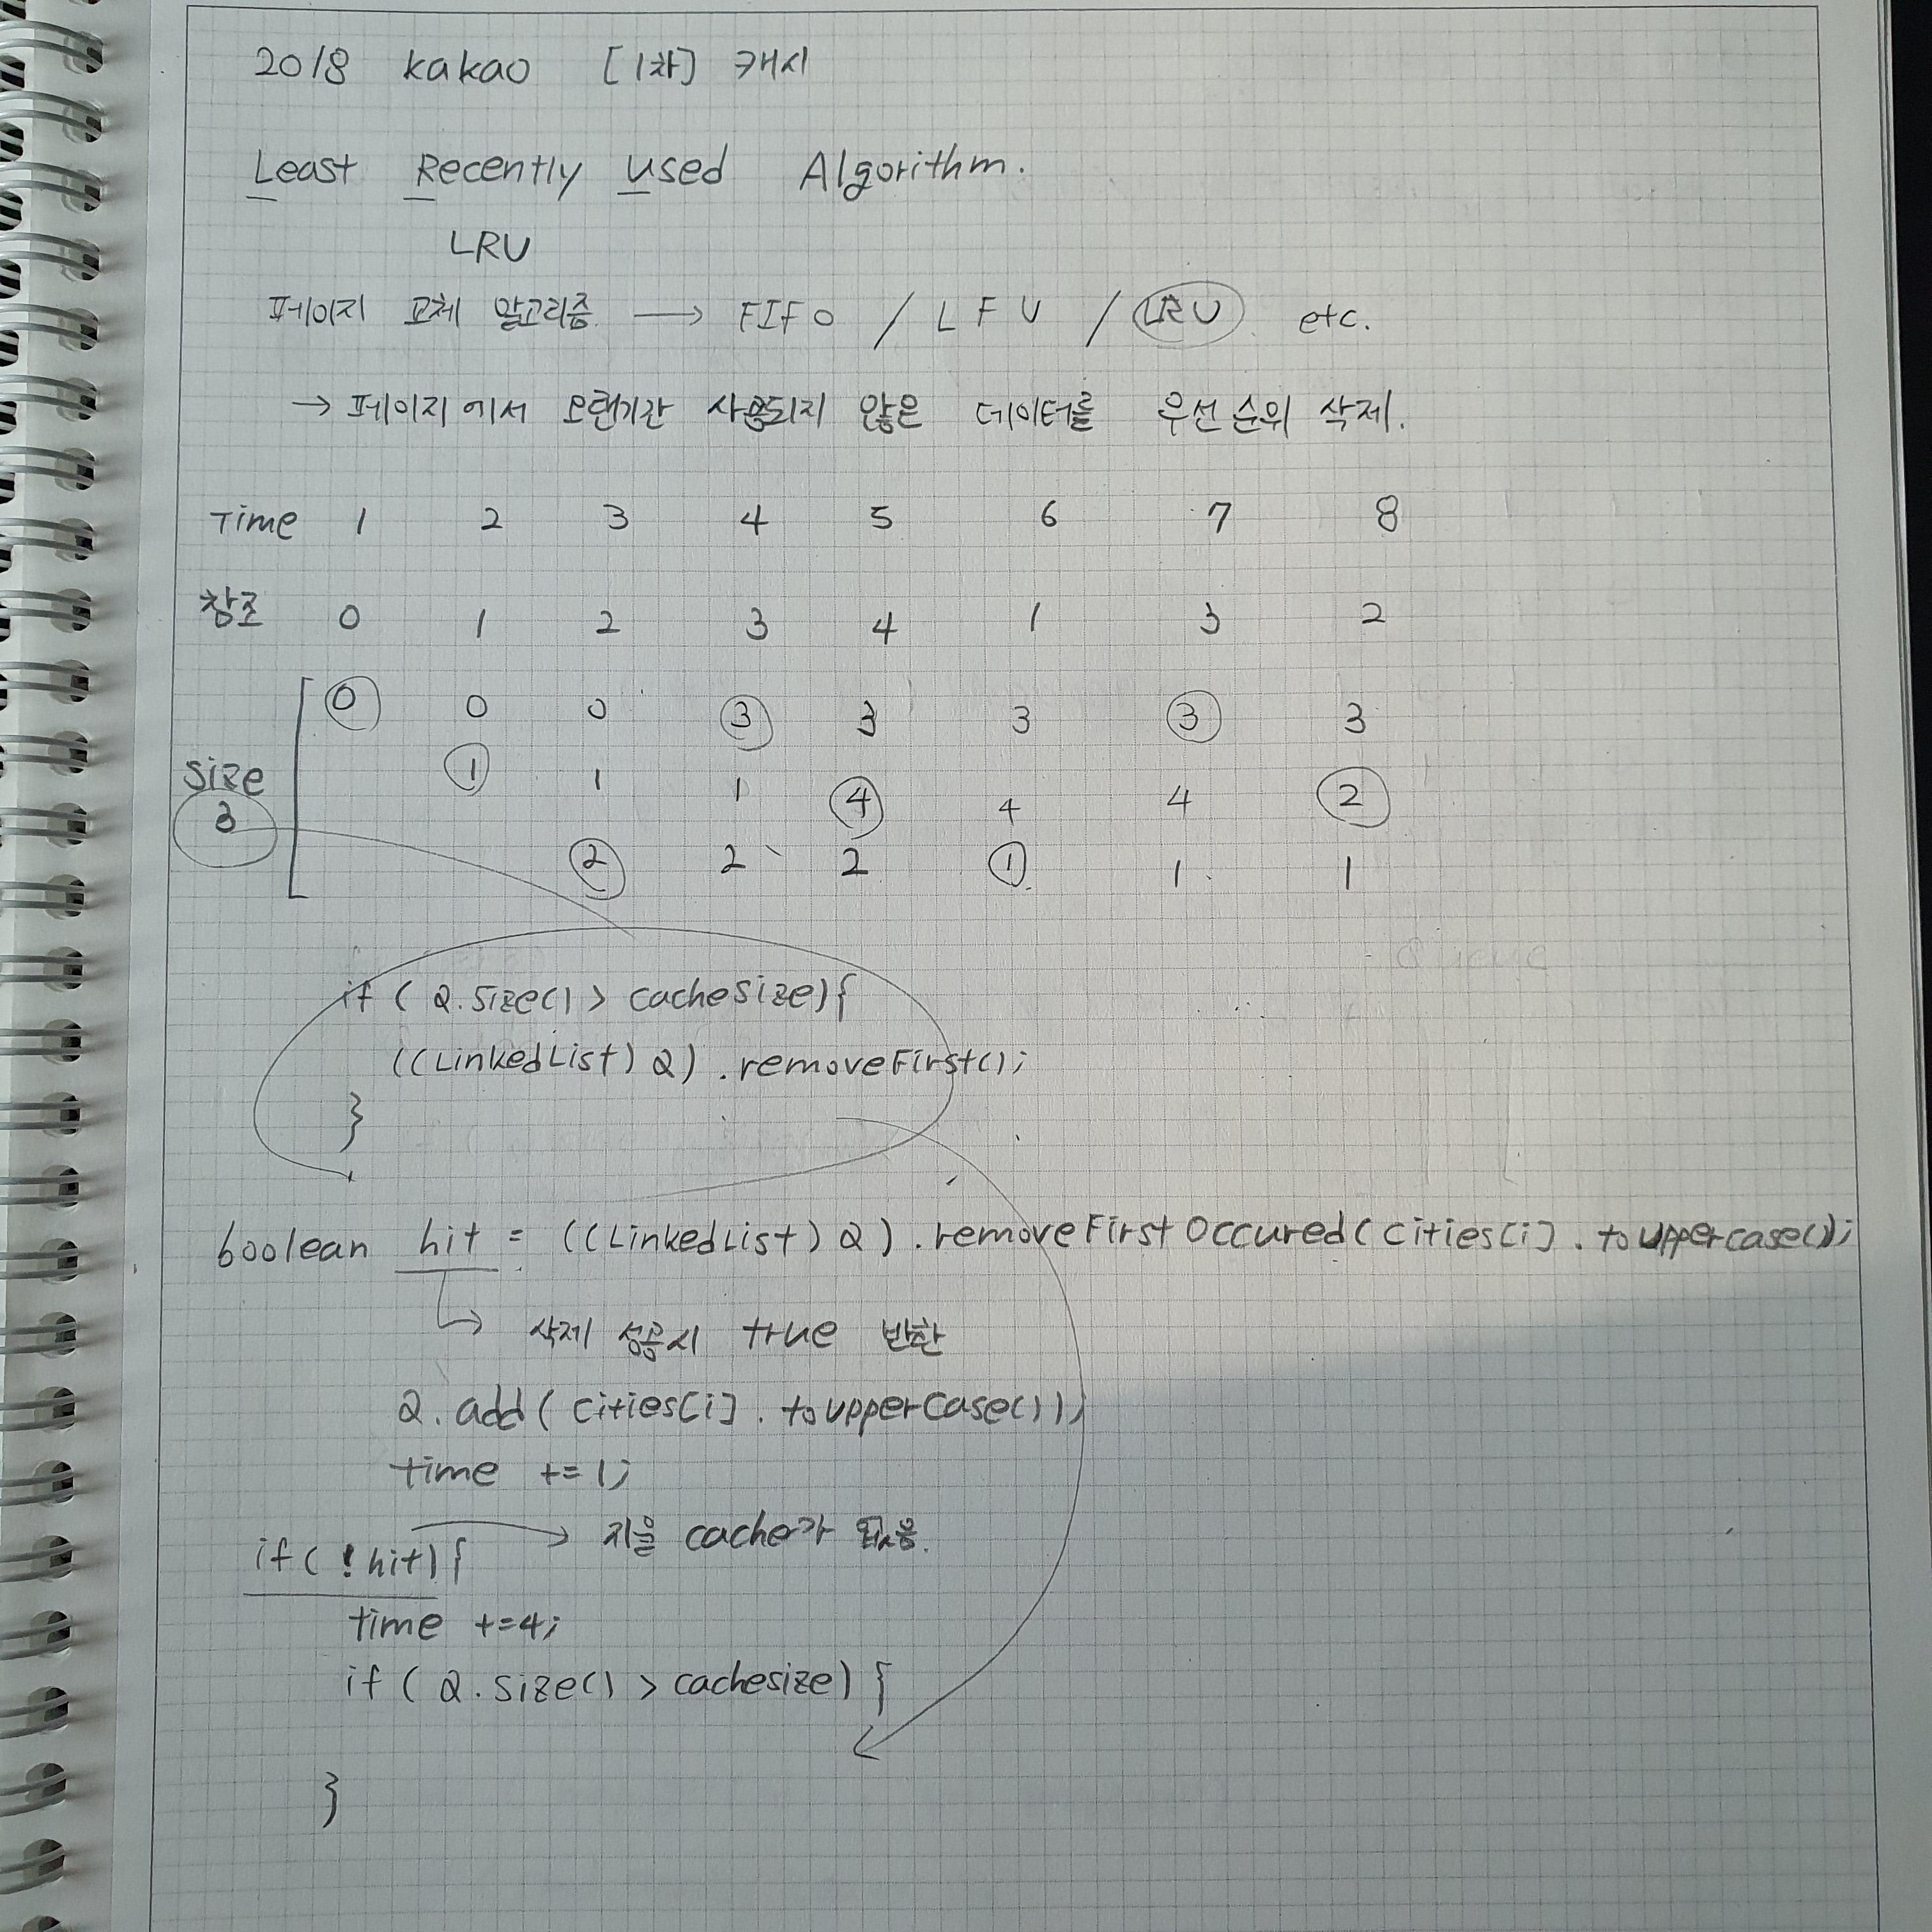 2018 kakao [1차] 캐시
Least Recently Used Algorithm.
LRU
페이지 교체 알고리즘 → FIFO / LFU / LRU etc.
→ 페이지에서 오랜기간 사용되지 않은 데이터를 우선순위 삭제.
Time 1 2 3 4 5 6 7 8
참조 0 1 2 3 4 1 3 2
0 0 0 3 3 3 3 3
size 1 1 1 4 4 4 2
3
2 2 2 1 1 1
if ( Q.size() > cacheSize){
((LinkedList) Q) .removeFirst();
}
boolean hit = ((LinkedList) Q) .removeFirstOccured(cities[i] .toUppercase());
↳ 삭제 성공시 true 반환
Q. add( cities[i] .toUpperCase());
time += 1;
→ 지울 cache가 없음.
if( !hit){
time +=4;
if( Q.size() > cachesize) {
}